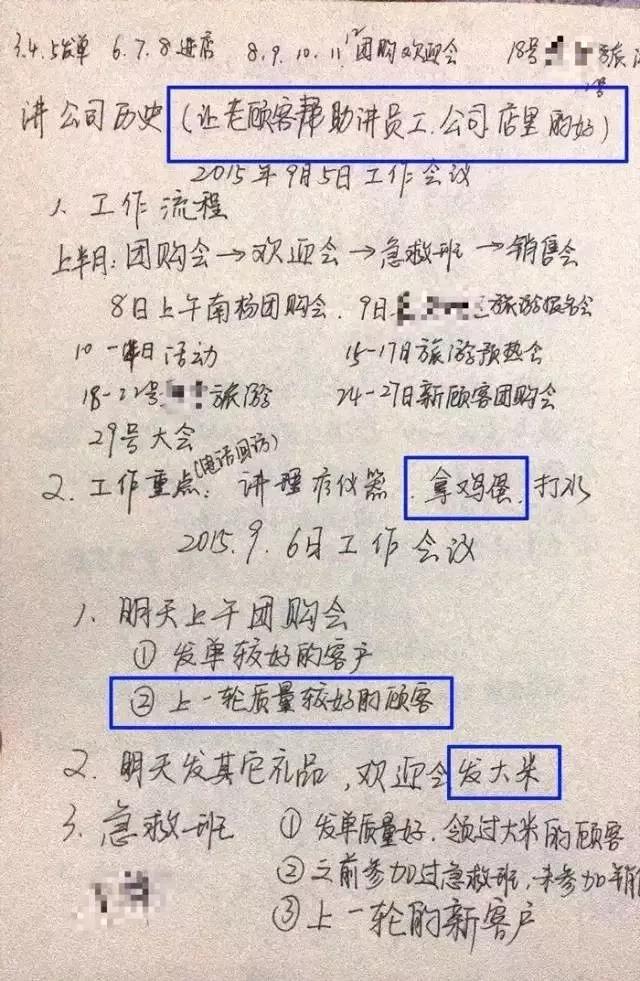 3.4.5发单 6.7.8进店 8.9.10.11.12团购欢迎会 18号 旅
讲公司历史(让老顾客帮助讲员工.公司店里的好)
2015年9月5日工作会议
1、工作流程
上半月:团购会→欢迎会→急救班→销售会
8日上午南杨团购会.9日 旅游报名会
10一 日活动 15-17日旅游预热会
18-22号 旅游 24-27日新顾客团购会
29号大会
(电话回访)
2.工作重点:讲理疗仪器.拿鸡蛋.打水
2015.9.6日工作会议
1.明天上午团购会
①发单较好的客户
②上一轮质量较好的顾客
2.明天发其它礼品,欢迎会发大米
3.急救班 ①发单质量好.领过大米的顾客
②之前参加过急救班,未参加销
③上一轮的新客户